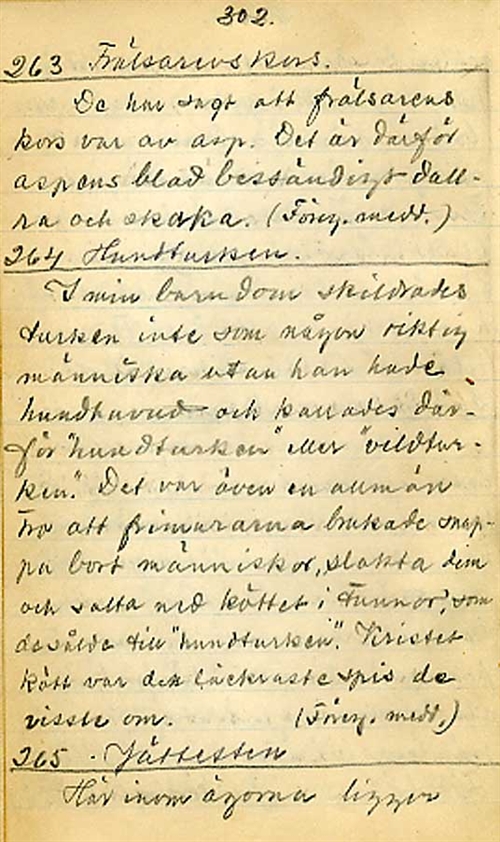 302.
263 Frälsarens kors.
De har sagt att frälsarens
kors var av asp. Det är därför
aspens blad beständigt dall-
ra och skaka. (Föreg. medd.)
264 Hundturken.
I min barndom skildrades
turken inte som någon riktig
människa utan han hade
hundhuvud och kallades där-
för "hundturken" eller "vildtur-
ken." Det var även en allmän
tro att frimurarna brukade snap-
pa bort människor, slakta dem
och salta ned köttet i tunnor, som
de sålde till "hundturken". Kristet
kött var den läckraste spis de
visste om. (Föreg. medd.)
265 . Jättesten
Här inom ägorna ligger